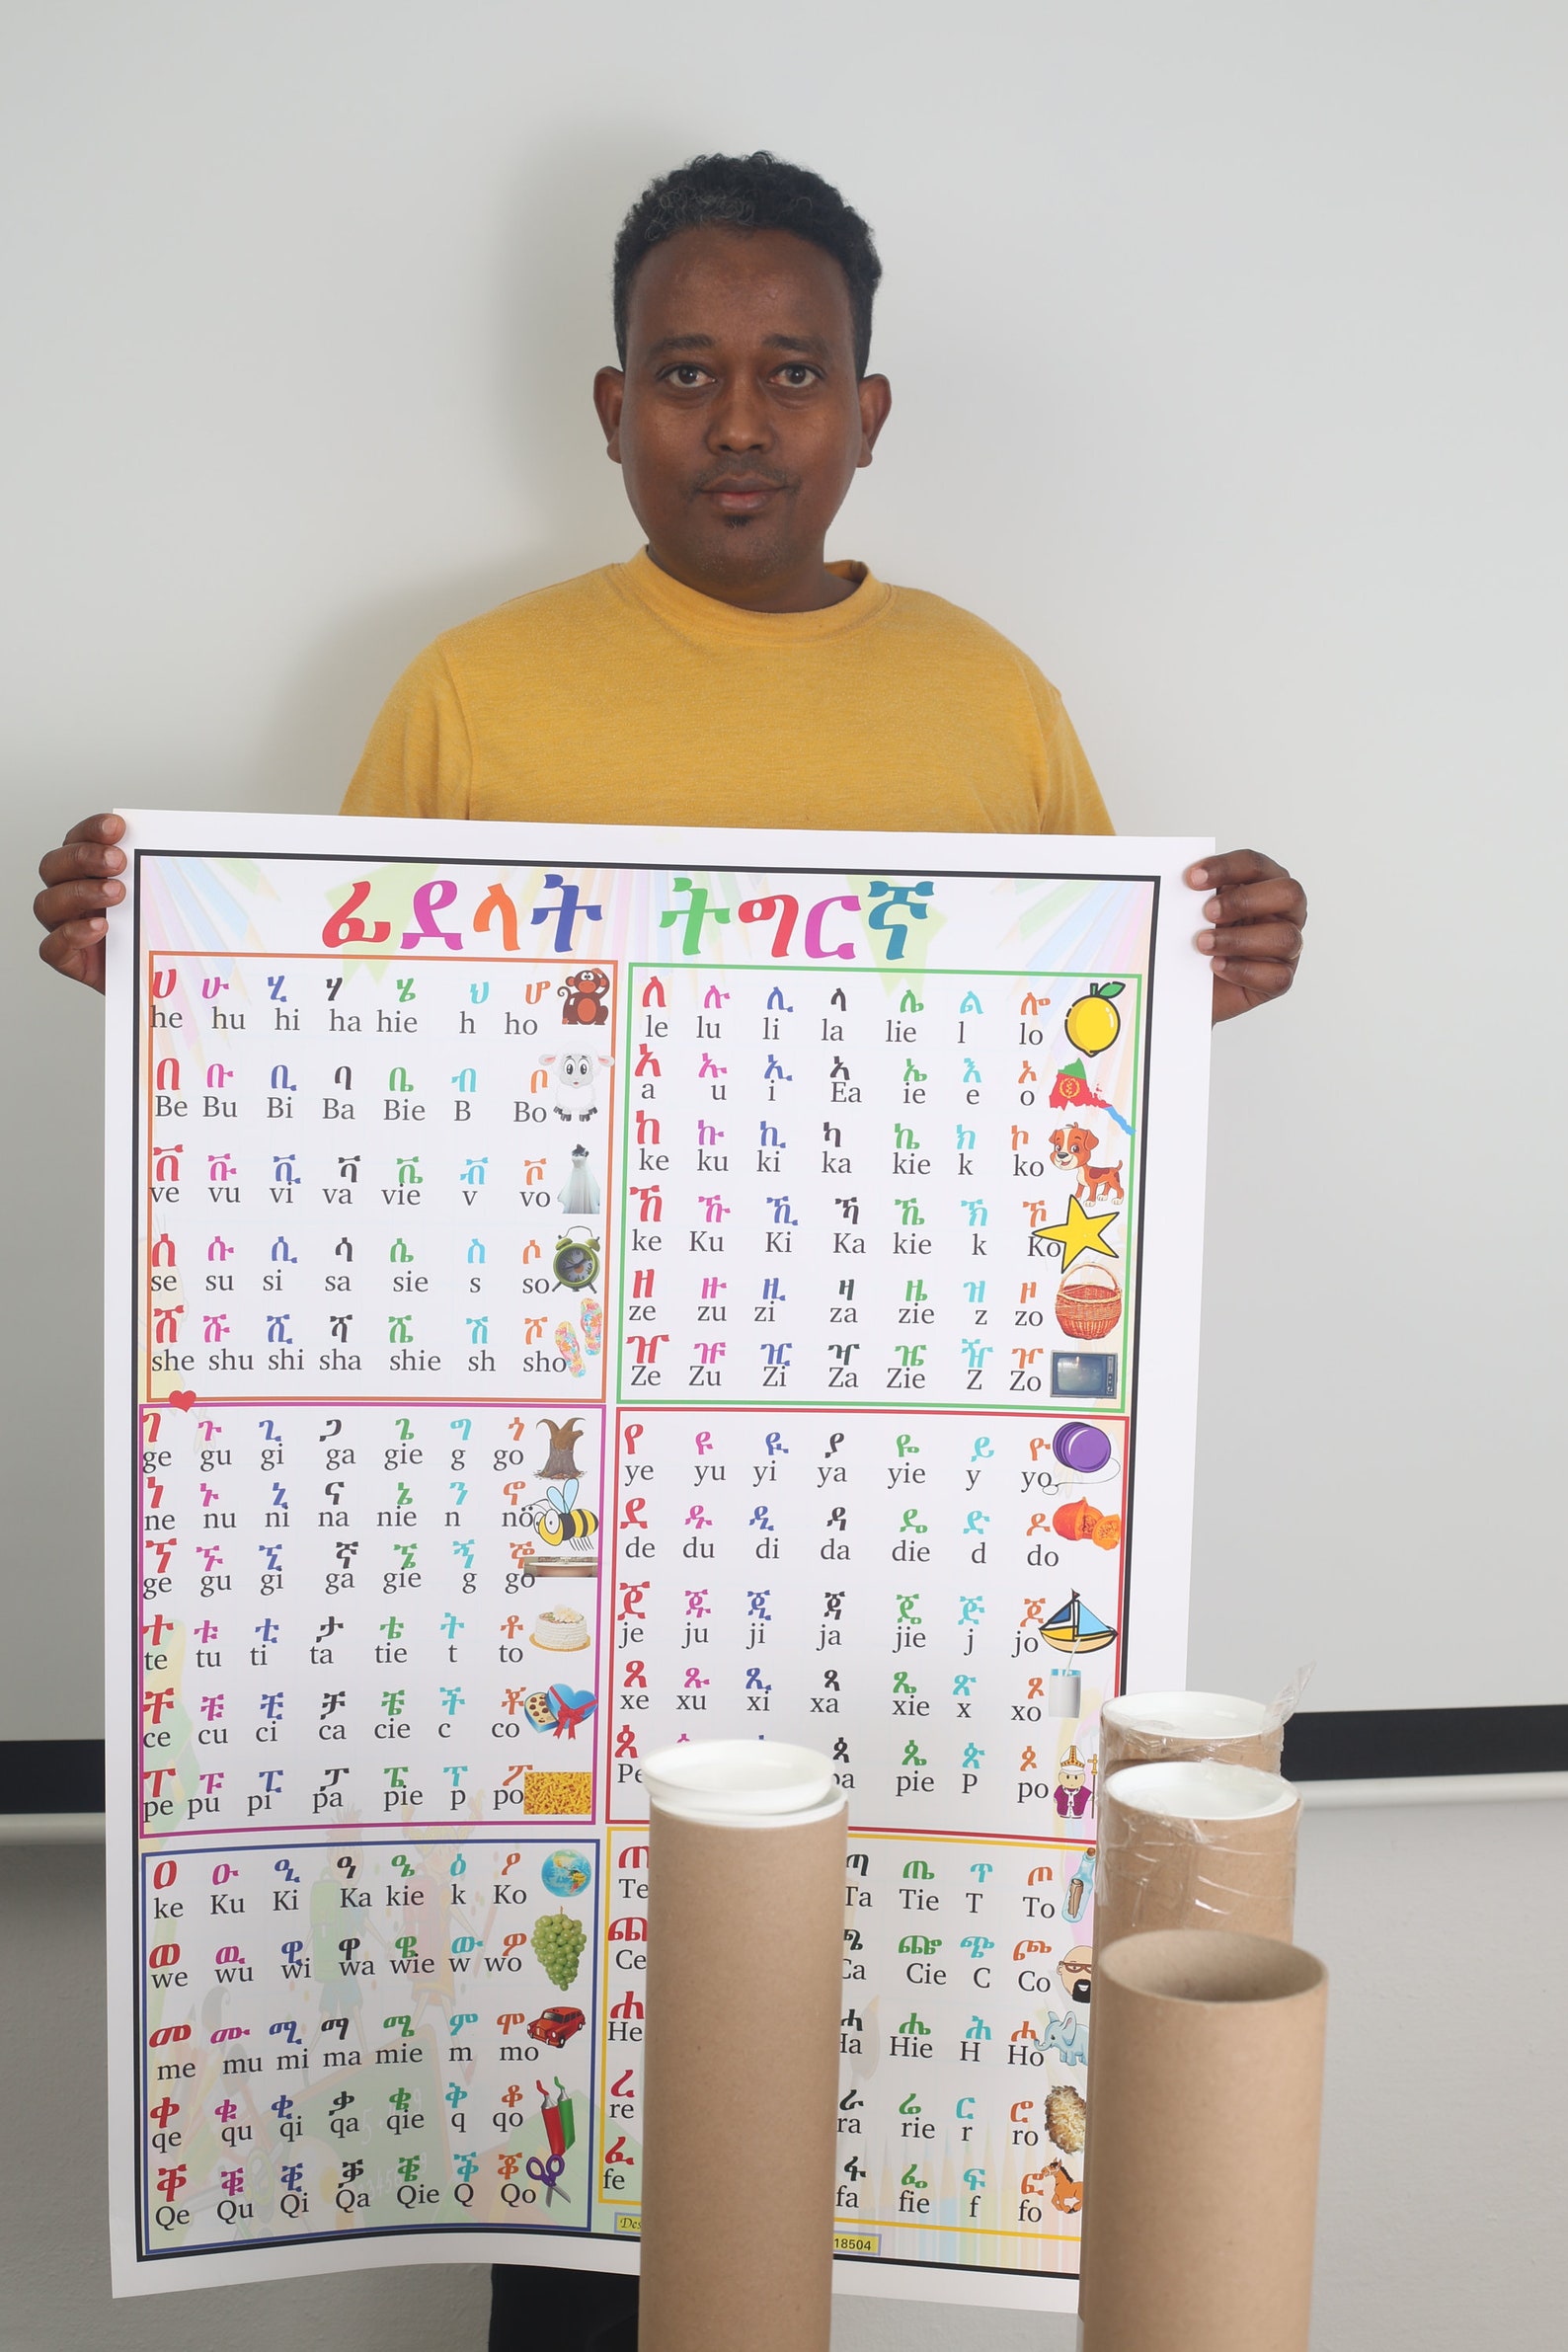 ፊደላት ትግርኛ
ሀ ሁ ሂ ሃ ሄ ህ ሆ
he hu hi ha hie h ho
በ ቡ ቢ ባ ቤ ብ ቦ
Be Bu Bi Ba Bie B Bo
ቨ ቩ ቪ ቫ ቬ ቭ ቮ
ve vu vi va vie v vo
ሰ ሱ ሲ ሳ ሴ ስ ሶ
se su si sa sie s so
ሸ ሹ ሺ ሻ ሼ ሽ ሾ
she shu shi sha shie sh sho
ለ ሉ ሊ ላ ሌ ል ሎ
le lu li la lie l lo
አ ኡ ኢ ኣ ኤ እ ኦ
a u i Ea ie e o
ከ ኩ ኪ ካ ኬ ክ ኮ
ke ku ki ka kie k ko
ኸ ኹ ኺ ኻ ኼ ኽ ኾ
ke Ku Ki Ka kie k Ko
ዘ ዙ ዚ ዛ ዜ ዝ ዞ
ze zu zi za zie z zo
ዠ ዡ ዢ ዣ ዤ ዥ ዦ
Ze Zu Zi Za Zie Z Zo
ገ ጉ ጊ ጋ ጌ ግ ጎ
ge gu gi ga gie g go
ነ ኑ ኒ ና ኔ ን ኖ
ne nu ni na nie n no
ኘ ኙ ኚ ኛ ኜ ኝ ኞ
ge gu gi ga gie g go
ተ ቱ ቲ ታ ቴ ት ቶ
te tu ti ta tie t to
ቸ ቹ ቺ ቻ ቼ ች ቾ
ce cu ci ca cie c co
ፐ ፑ ፒ ፓ ፔ ፕ ፖ
pe pu pi pa pie p po
የ ዩ ዪ ያ ዬ ይ ዮ
ye yu yi ya yie y yo
ደ ዱ ዲ ዳ ዴ ድ ዶ
de du di da die d do
ጀ ጁ ጂ ጃ ጄ ጅ ጆ
je ju ji ja jie j jo
ጸ ጹ ጺ ጻ ጼ ጽ ጾ
xe xu xi xa xie x xo
ጰ ጳ ጴ ጵ ጶ
pie P po
ዐ ዑ ዒ ዓ ዔ ዕ ዖ
ke Ku Ki Ka kie k Ko
ወ ዉ ዊ ዋ ዌ ው ዎ
we wu wi wa wie w wo
መ ሙ ሚ ማ ሜ ም ሞ
me mu mi ma mie m mo
ቀ ቁ ቂ ቃ ቄ ቅ ቆ
qe qu qi qa qie q qo
ቐ ቑ ቒ ቓ ቔ ቕ ቖ
Qe Qu Qi Qa Qie Q Qo
ጠ ጣ ጤ ጥ ጦ
Te Ta Tie T To
ጨ ጫ ጬ ጭ ጮ
Ce Ca Cie C Co
ሐ ሓ ሔ ሕ ሖ
He Ha Hie H Ho
ረ ራ ሬ ር ሮ
re ra rie r ro
ፈ ፋ ፌ ፍ ፎ
fe fa fie f fo
18504